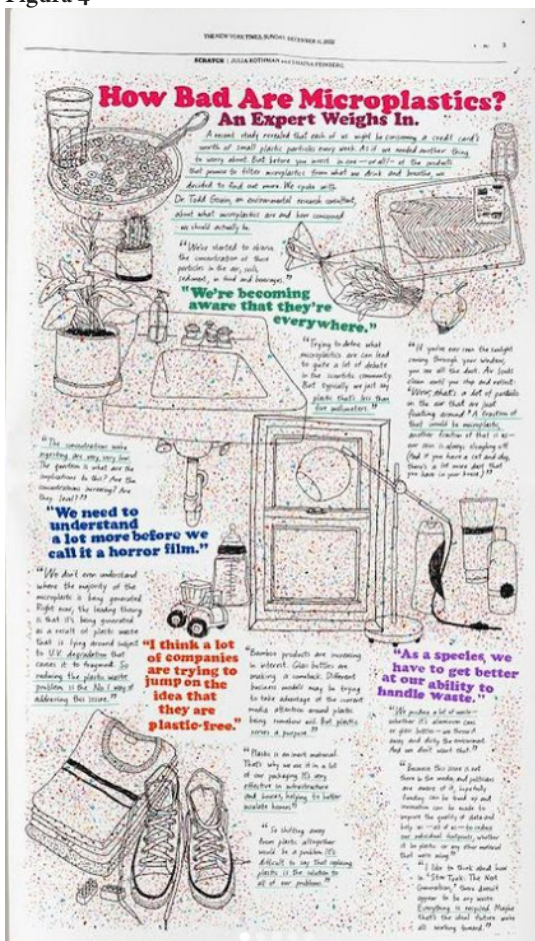 Figura 4
THE NEW YORK TIMES, SUNDAY, DECEMBER 11, 2022
3
SCRATCH | JULIA ROTHMAN and SHAINA FEINBERG
How Bad Are Microplastics?
An Expert Weighs In.
A recent study revealed that each of us might be consuming a credit card's
worth of small plastic particles every week. As if we needed another thing
to worry about. But before you invest in one—or all!—of the products
that promise to filter microplastics from what we drink and breathe, we
decided to find out more. We spoke with
Dr. Todd Gouin, an environmental research consultant,
about what microplastics are and how concerned
we should actually be.
"We've started to observe
the concentration of these
particles in the air, soils,
sediment, in food and beverages."
"We're becoming
aware that they're
everywhere."
"Trying to define what
microplastics are can lead
to quite a lot of debate
in the scientific community.
But typically we just say
plastic that's less than
five millimeters."
"If you've ever seen the sunlight
coming through your window,
you see all the dust. Air looks
clean until you stop and reflect:
'Wow, that's a lot of particles
in the air that are just
floating around.' A fraction of
that would be microplastic,
another fraction of that is us—
our skin is always sloughing off.
(And if you have a cat and dog,
there's a lot more dust that
you have in your house.)"
"The concentrations we're
ingesting are very, very low.
The question is what are the
implications to this? Are the
concentrations increasing? Are
they level?"
"We need to
understand
a lot more before we
call it a horror film."
"We don't even understand
where the majority of the
microplastic is being generated.
Right now, the leading theory
is that it's being generated
as a result of plastic waste
that is lying around subject
to U.V. degradation that
causes it to fragment. So
reducing the plastic waste
problem is the No. 1 way of
addressing this issue."
"I think a lot
of companies
are trying to
jump on the
idea that
they are
plastic-free."
"Bamboo products are increasing
in interest. Glass bottles are
making a comeback. Different
business models may be trying
to take advantage of the current
media attention around plastic
being somehow evil. But plastic
serves a purpose."
"Plastic is an inert material.
That's why we use it in a lot
of our packaging. It's very
effective in infrastructure
and houses, helping to better
insulate homes."
"So shifting away
from plastic altogether
would be a problem. It's
difficult to say that replacing
plastic is the solution to
all of our problems."
"As a species, we
have to get better
at our ability to
handle waste."
"We produce a lot of waste—
whether it's aluminum cans
or glass bottles—we throw it
away and dirty the environment.
And we don't want that."
"Because this issue is out
there in the media, and politicians
are aware of it, hopefully
funding can be freed up and
innovation can be made to
improve the quality of data and
help us—all of us—to reduce
our individual footprints, whether
it be plastic or any other material
that we're using."
"I like to think about how
in 'Star Trek: The Next
Generation,' there doesn't
appear to be any waste.
Everything is recycled. Maybe
that's the ideal future we're
all working toward."